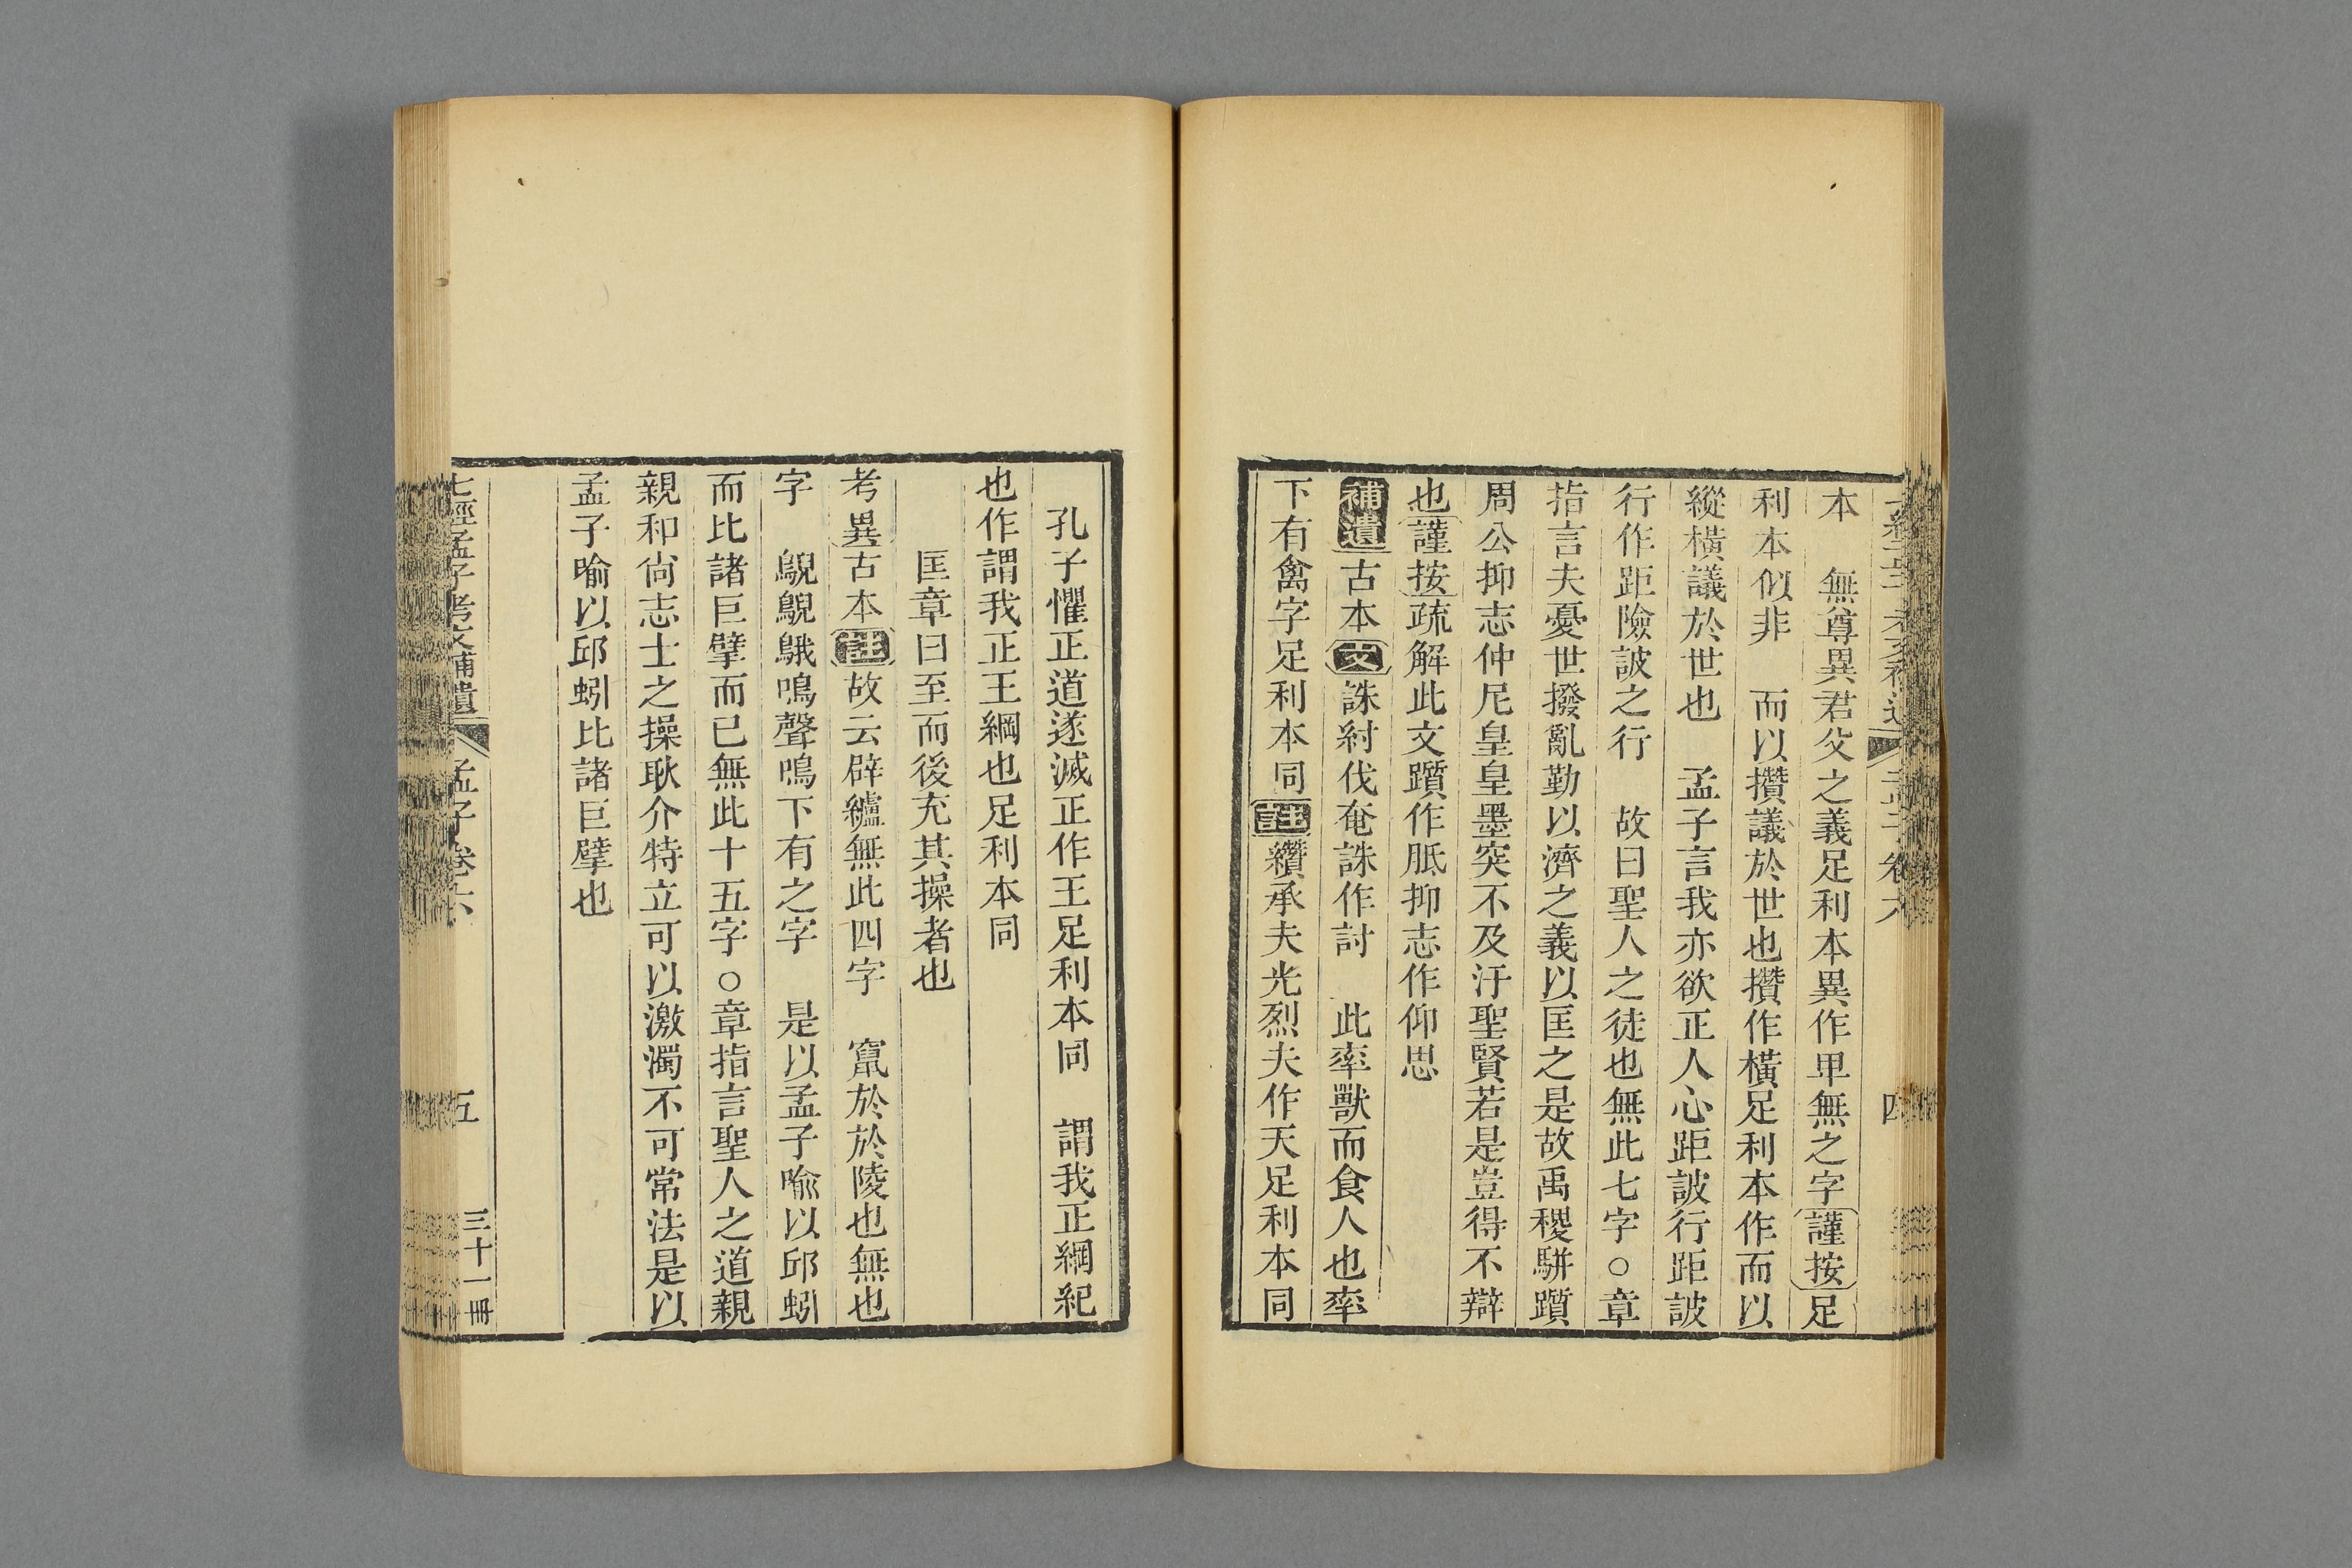 本　無尊異君父之義足利本異作卑無之字謹按足
利本似非　而以攢議於世也攢作橫足利本作而以
縱橫議於世也　孟子言我亦欲正人心距詖行距詖
行作距險詖之行　故曰聖人之徒也無此七字○章
指言夫憂世撥亂勤以濟之義以匡之是故禹稷駢躓
周公抑志仲尼皇皇墨突不及汙聖賢若是豈得不辯
也謹按疏解此文躓作胝抑志作仰思
補遺古本文誅紂伐奄誅作討　此率獸而食人也率
下有禽字足利本同註纘承夫光烈夫作天足利本同
孔子懼正道遂滅正作王足利本同　謂我正綱紀
也作謂我正王綱也足利本同
匡章曰至而後充其操者也
考異古本註故云辟纑無此四字　竄於於陵也無也
字　鶃鶃鵝鳴聲鳴下有之字　是以孟子喻以邱蚓
而比諸巨擘而已無此十五字○章指言聖人之道親
親和尙志士之操耿介特立可以激濁不可常法是以
孟子喻以邱蚓比諸巨擘也
七經孟子考文補遺　孟子卷六　五　三十一冊